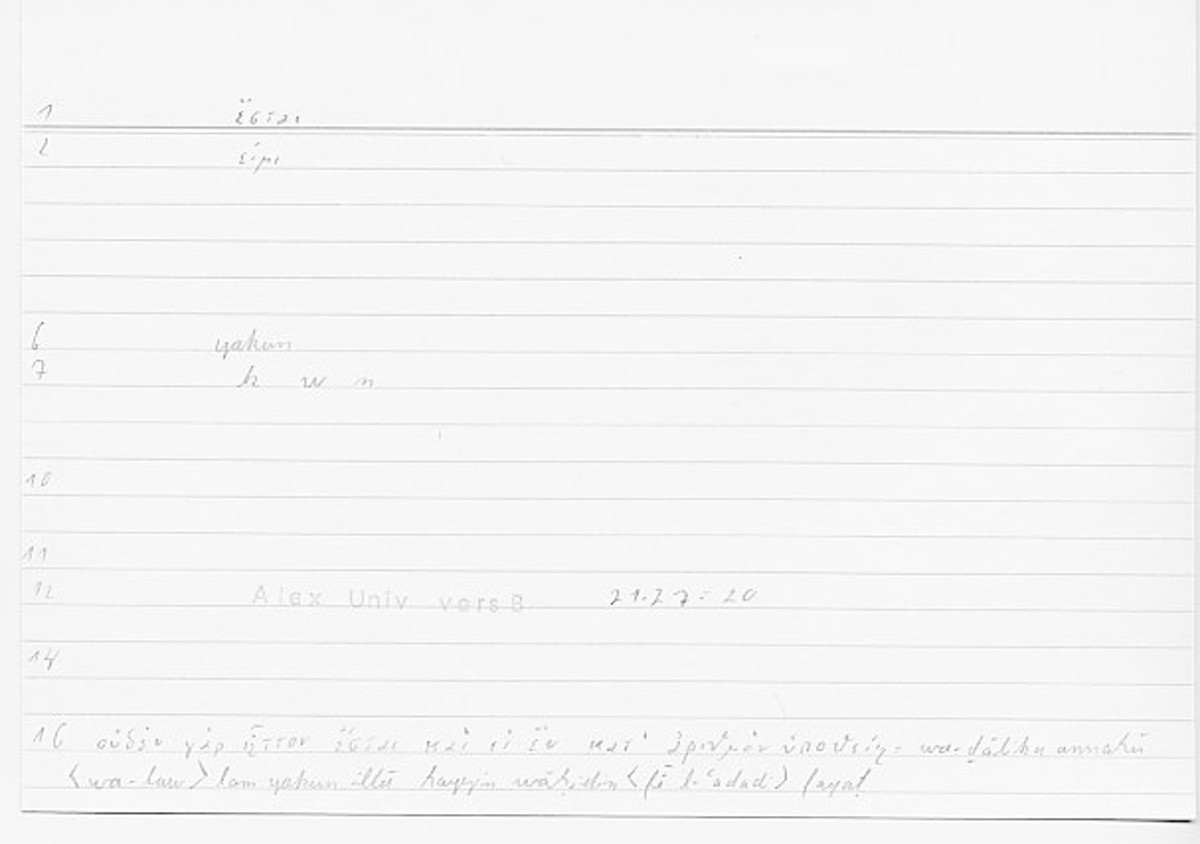 1 ἔσται
2 εἰμι
6 yakun
7 k w n
10
11
12 Alex Univ vers B 21.27 = 20
14
16 οὐδὲν γὰρ ἧττον ἔσται καὶ εἰ ἓν κατ' ἀριθμὸν ὑποθείη = wa-ḏālika annahū
<wa-law> lam yakun illā ḥayyin wāḥidin <fī l-ʿadad> faqaṭ